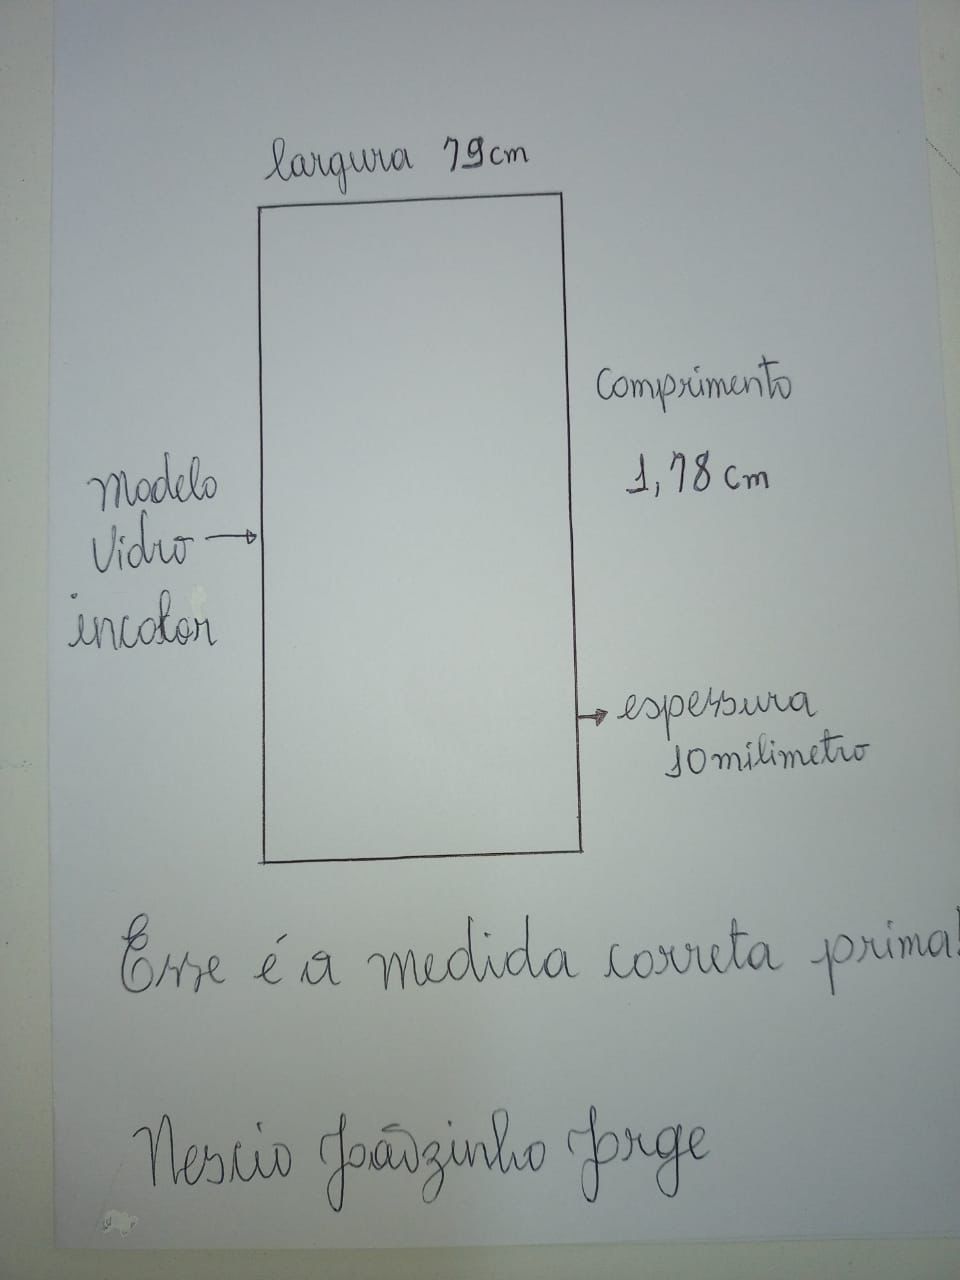 largura 79cm
comprimento
1,78 cm
modelo
Vidro
incolor
espessura
10 milimetro
Esse é a medida correta prima!
Nescio Joãozinho Jorge